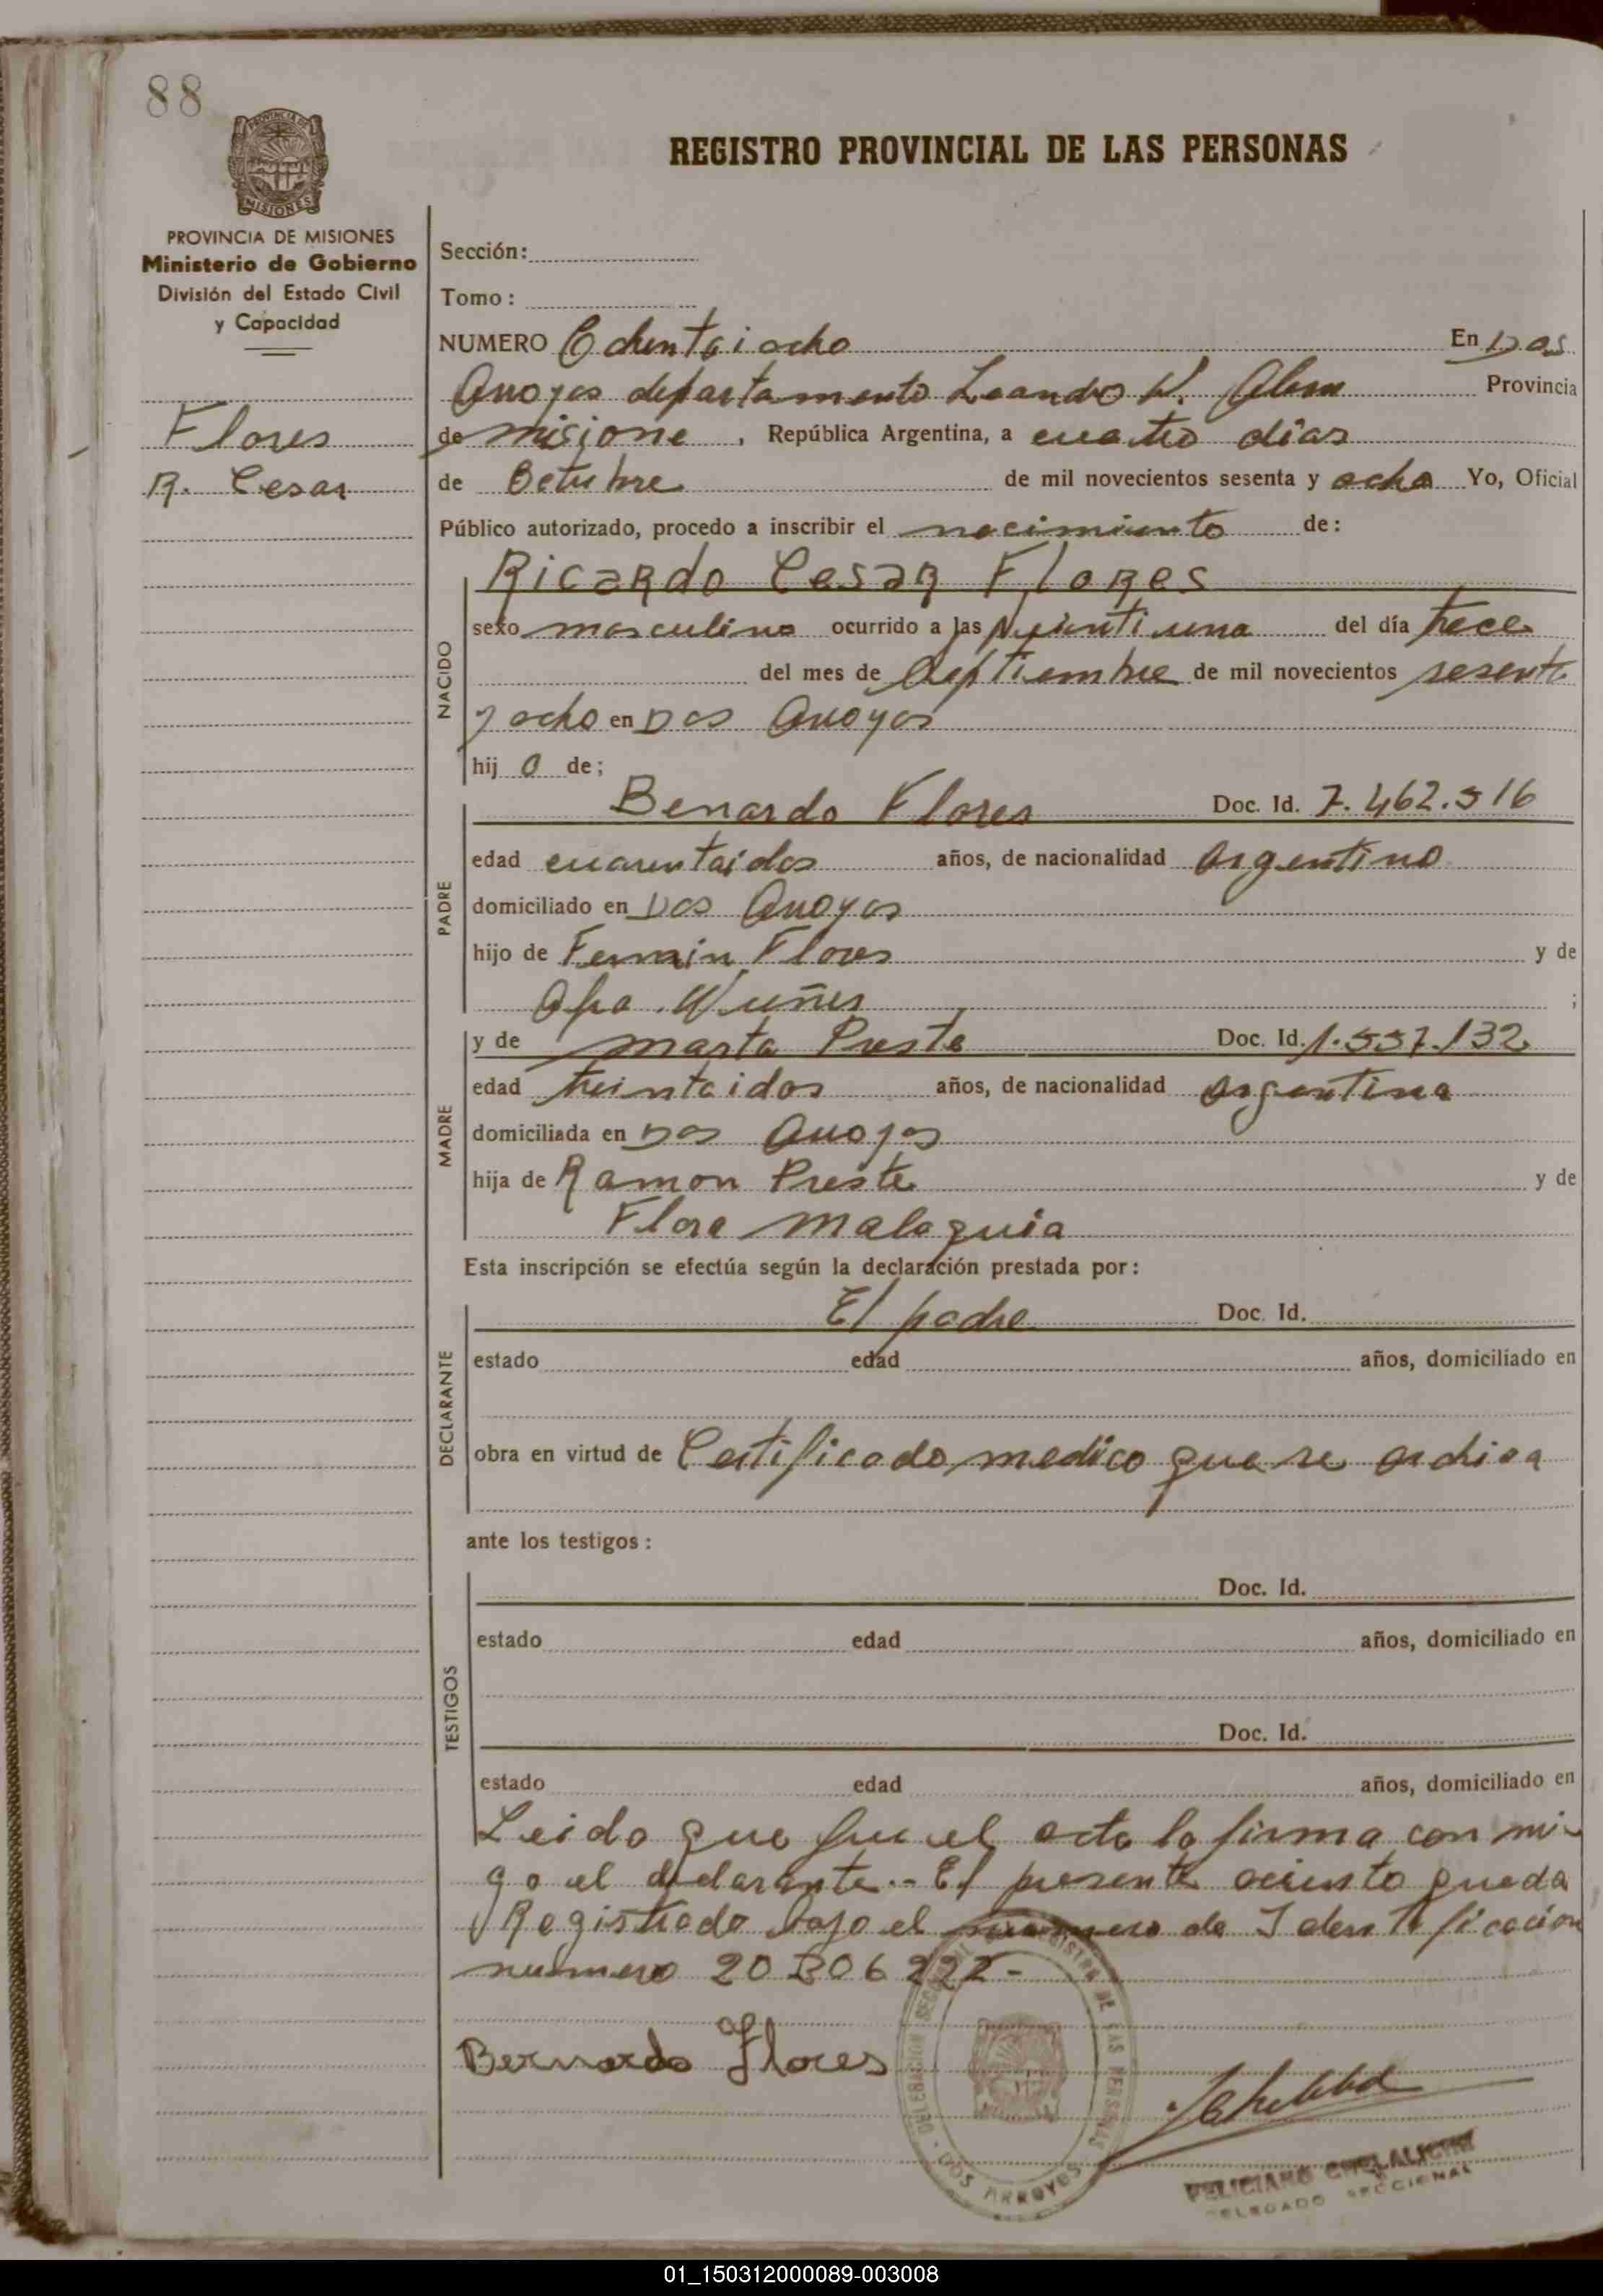 88
PROVINCIA DE
MISIONES
REGISTRO PROVINCIAL DE LAS PERSONAS
PROVINCIA DE MISIONES
Ministerio de Gobierno
División del Estado Civil
y Capacidad
Flores
R. Cesar
Sección:
Tomo:
NUMERO Ochentaiocho En Dos
Arroyos departamento Leandro N. Alem Provincia
de misione, República Argentina, a cuatro días
de Octubre de mil novecientos sesenta y ocho Yo, Oficial
Público autorizado, procedo a inscribir el nacimiento de:
NACIDO
Ricardo Cesar Flores
sexo masculino ocurrido a las veintiuna del día trece
del mes de Septiembre de mil novecientos sesenta
y ocho en Dos Arroyos
hij o de;
PADRE
Benardo Flores Doc. Id. 7.462.516
edad cuarentaidos años, de nacionalidad argentino
domiciliado en Dos Arroyos
hijo de Fermin Flores y de
Nuñes ;
MADRE
y de Marta Preste Doc. Id. 1.557.132
edad treintaidos años, de nacionalidad argentina
domiciliada en Dos Arroyos
hija de Ramon Preste y de
Flora Malaquia
Esta inscripción se efectúa según la declaración prestada por:
DECLARANTE
El padre Doc. Id.
estado edad años, domiciliado en
obra en virtud de Certificado medico que se archiva
ante los testigos:
TESTIGOS
Doc. Id.
estado edad años, domiciliado en
Doc. Id.
estado edad años, domiciliado en
Leido que fue el acta la firma con mi-
go el declarante.- El presente asiento queda
Registrado bajo el numero de Identificación
numero 20306222-
Bernardo Flores
DELEGACION SECCIONAL REGISTRO DE LAS PERSONAS
DOS ARROYOS
FELICIANO
DELEGADO SECCIONAL
01_150312000089-003008